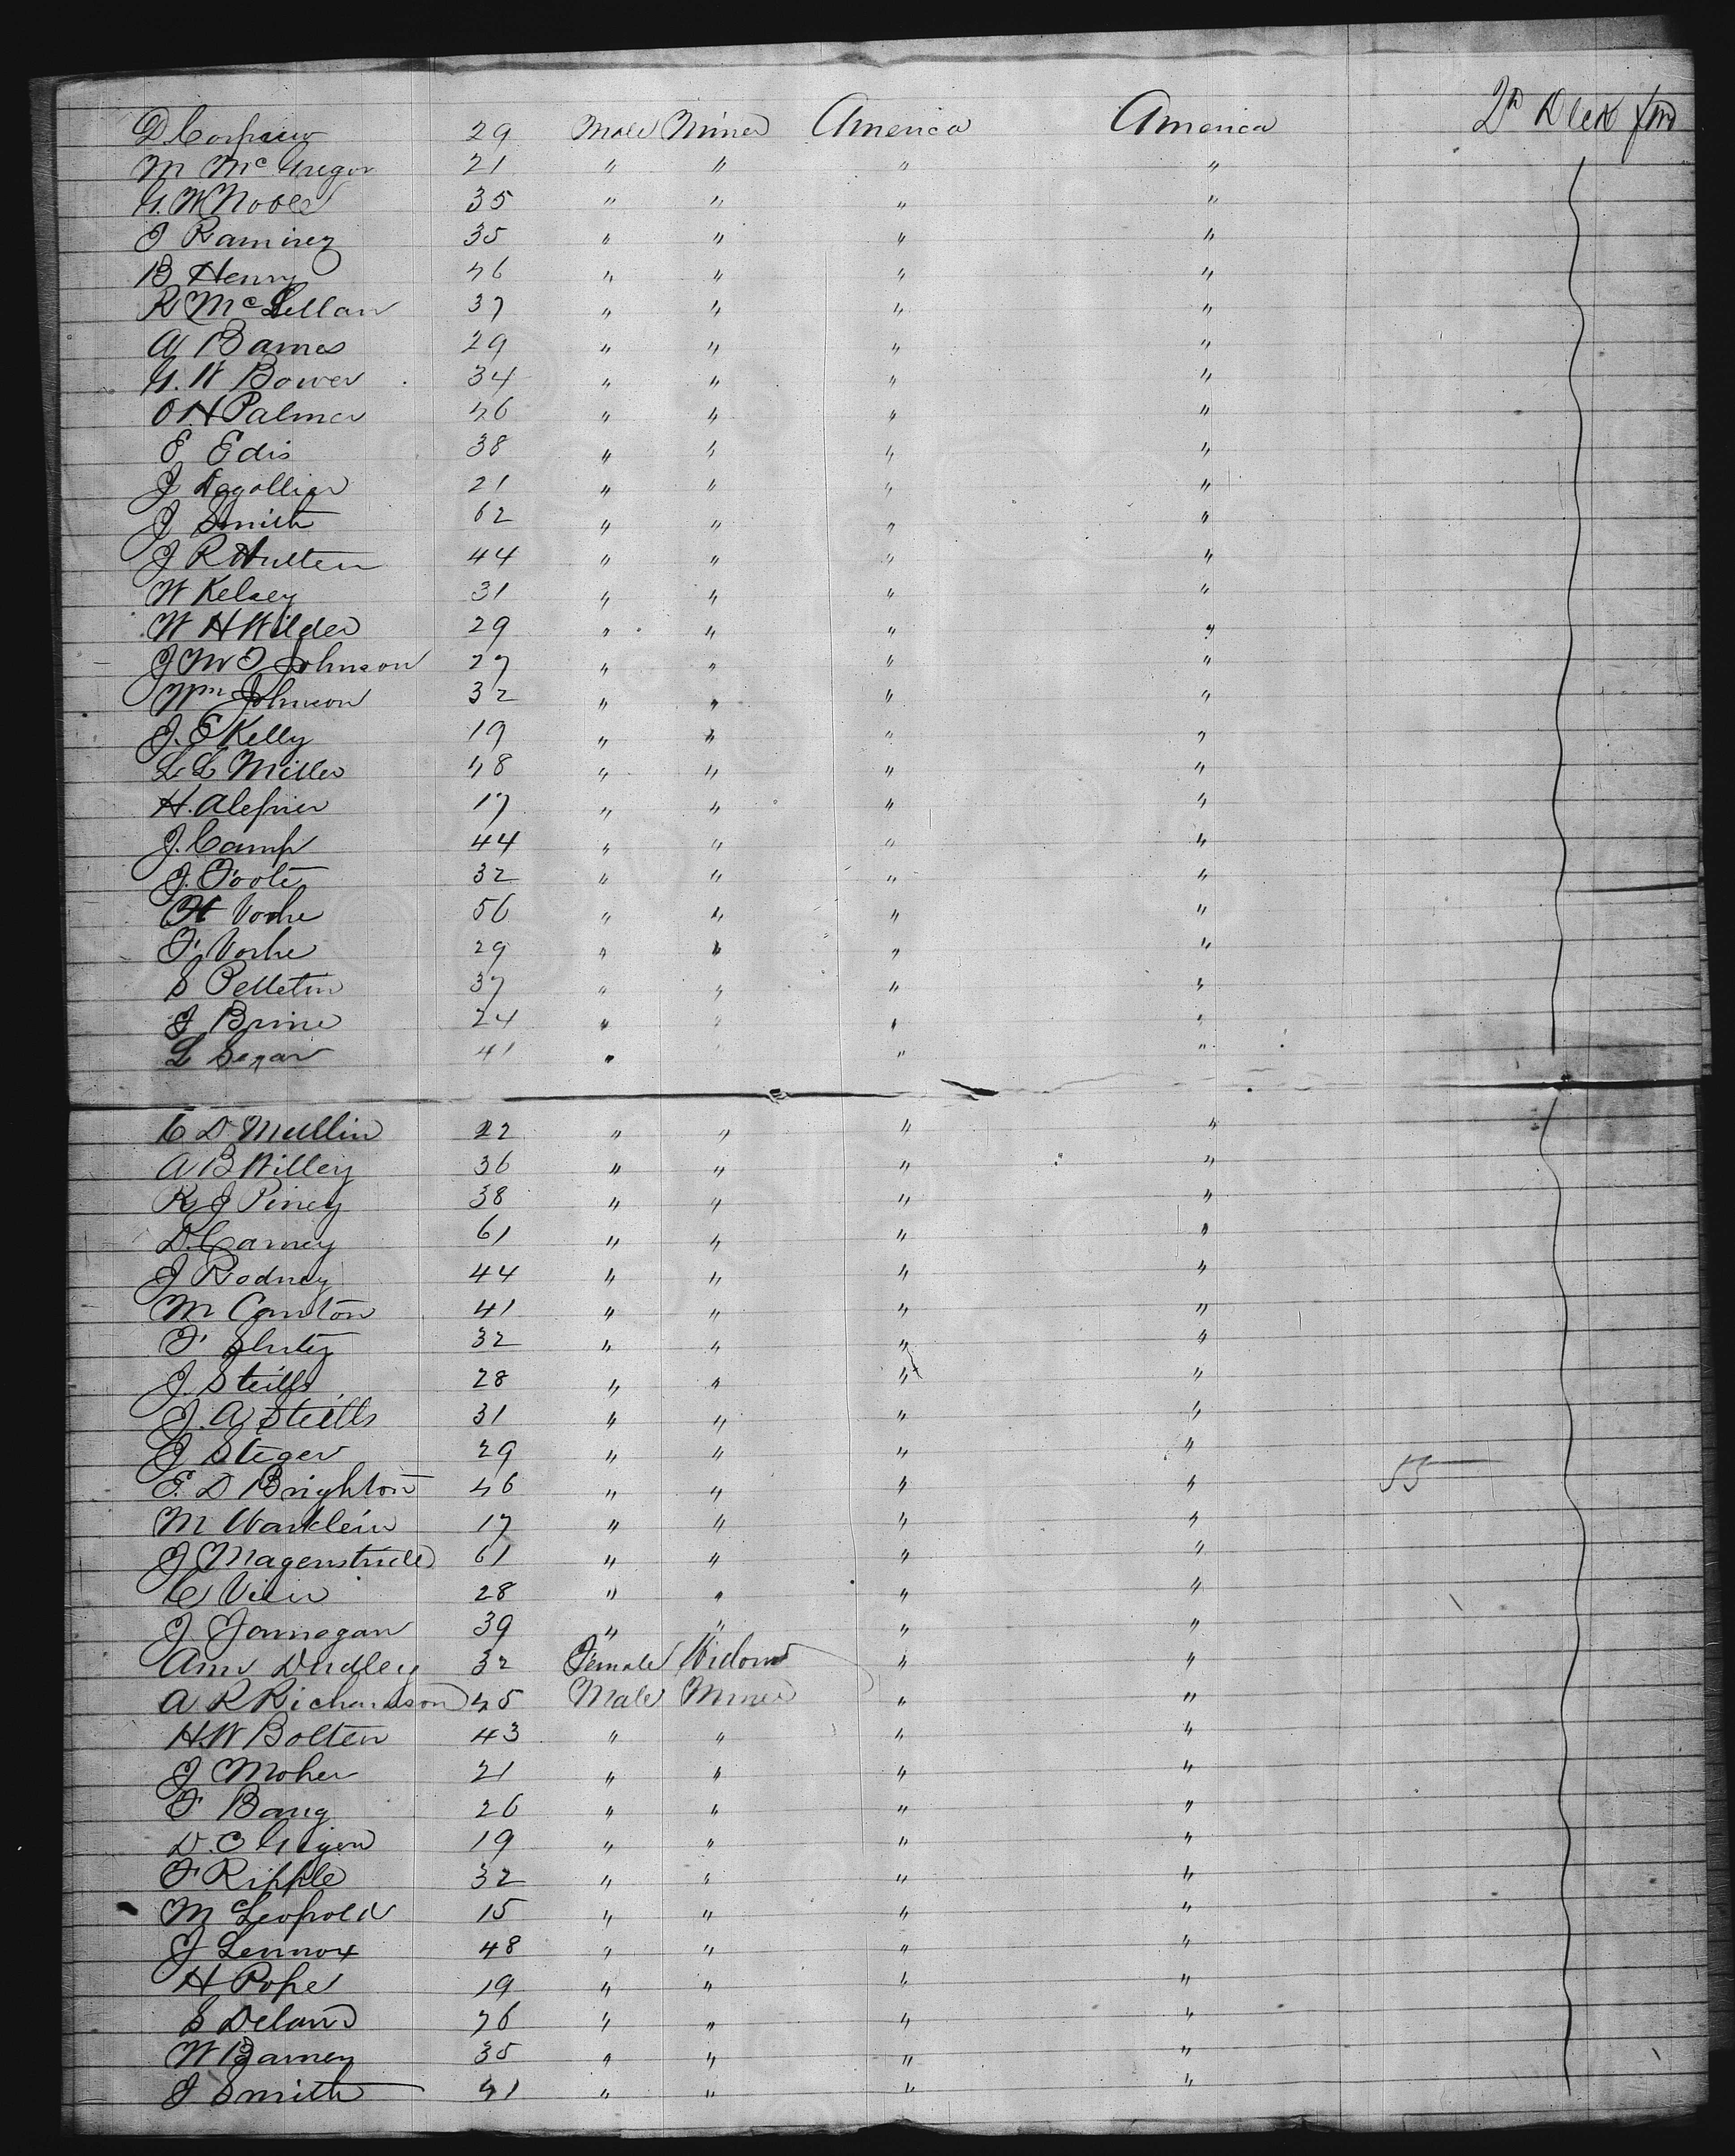 D 29 Male Miner America America 2d Deck fwd
M McGregor 21 " " " "
G. W Noble 35 " " " "
J Ramirez 35 " " " "
B Henry 46 " " " "
R McLellan 37 " " " "
A Barnes 29 " " " "
G. W Bower 34 " " " "
O. H Palmer 46 " " " "
E Edis 38 " " " "
J 21 " " " "
J Smith 62 " " " "
J R Hulten 44 " " " "
W Kelsey 31 " " " "
W H Wilder 29 " " " "
J W T Johnson 27 " " " "
Wm Johnson 32 " " " "
J. E Kelly 19 " " " "
L L Miller 48 " " " "
H. 17 " " " "
J. Camp 44 " " " "
J. Foote 32 " " " "
H Vorhe 56 " " " "
F. Vorhe 29 " " " "
S Pelletin 37 " " " "
J Brine 24 " " " "
L Segar 41 " " " "
C D Mullin 22 " " " "
A B Willey 36 " " " "
R J Piney 38 " " " "
D. Carney 61 " " " "
J Rodney 44 " " " "
M Canton 41 " " " "
F 32 " " " "
J. Steitts 28 " " " "
J. A Steitts 31 " " " "
J Steger 29 " " " "
E. D Brighton 46 " " " " 55
M Warklein 17 " " " "
J 61 " " " "
C View 28 " " " "
J. Jarnegan 39 " " " "
Ann Dudley 32 Female Widow " "
A R Richardson 45 Male Miner " "
H. W Bolten 43 " " " "
J Moher 21 " " " "
F Bang 26 " " " "
D. O 19 " " " "
F Ripple 32 " " " "
M Leopold 15 " " " "
J Lennox 48 " " " "
H Pope 19 " " " "
S Deland 26 " " " "
W Barney 35 " " " "
J Smith 41 " " " "